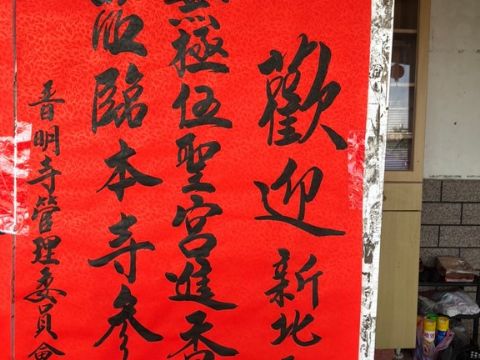 歡迎新北
無極伍聖宮進香
蒞臨本寺參
普明寺管理委員會